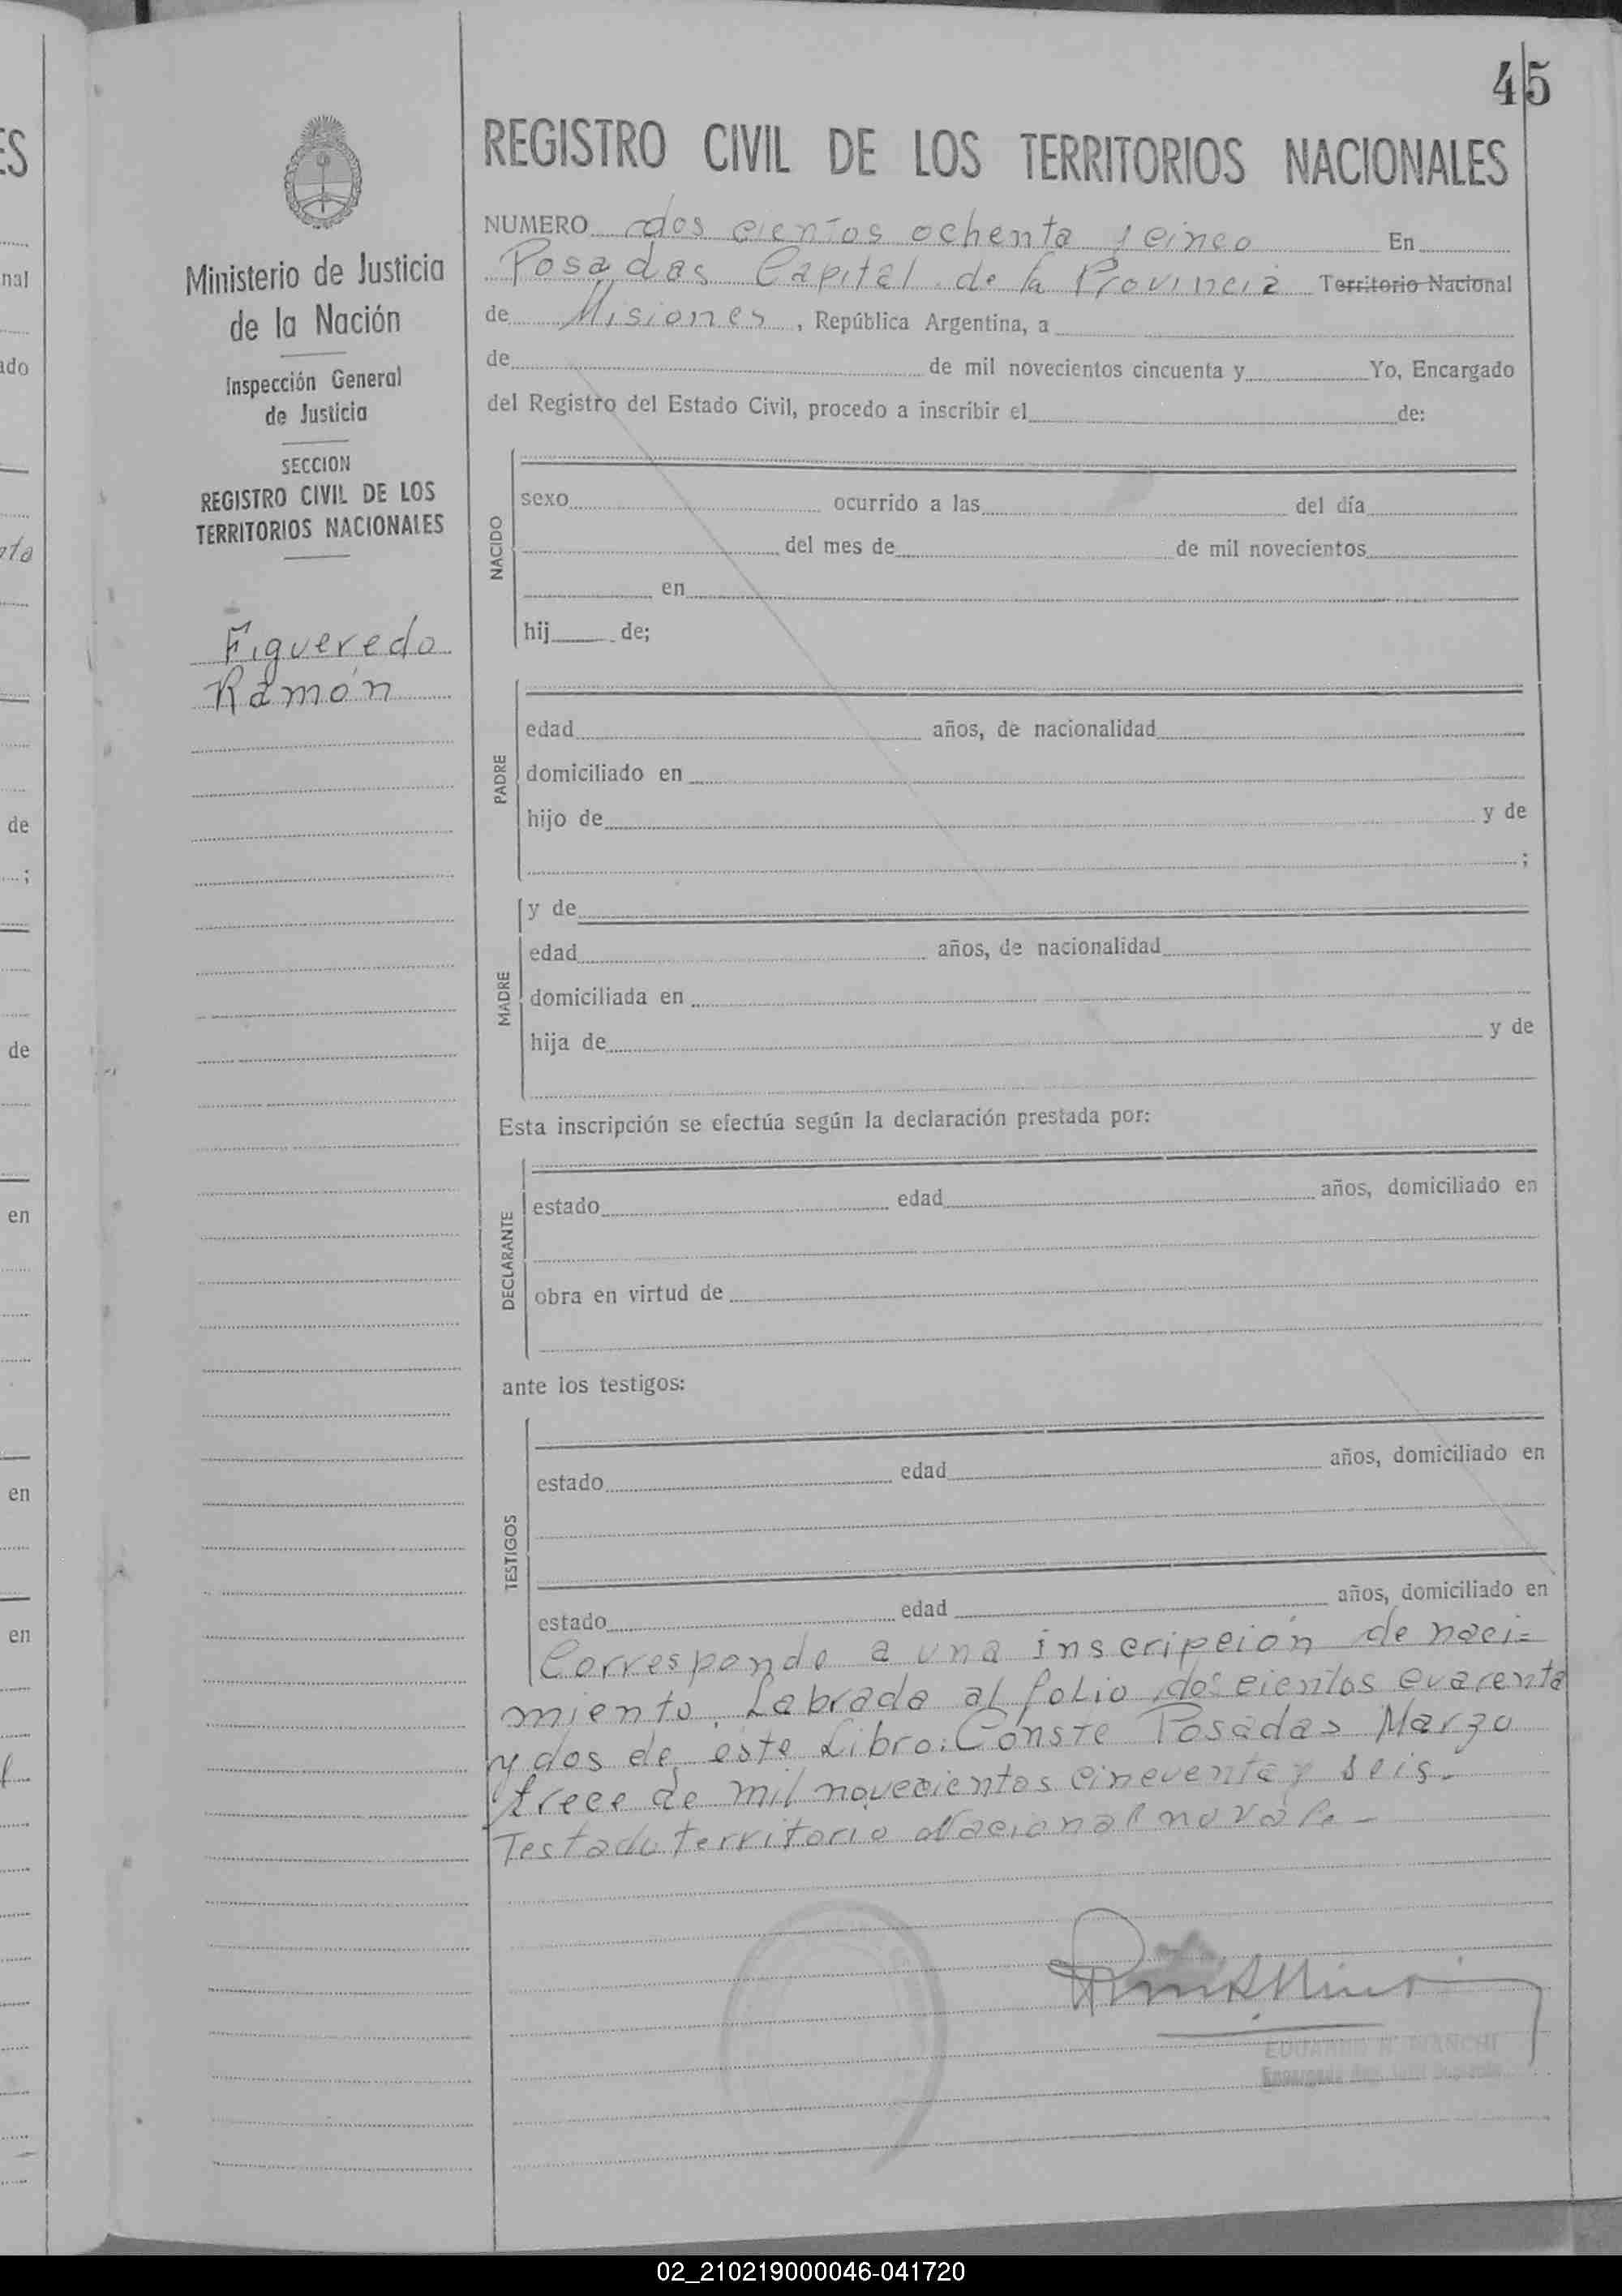 45
REGISTRO CIVIL DE LOS TERRITORIOS NACIONALES
NUMERO dos cientos ochenta y cinco En
Posadas Capital de la Provincia Territorio Nacional
de Misiones, República Argentina, a
de de mil novecientos cincuenta y Yo, Encargado
del Registro del Estado Civil, procedo a inscribir el de:
Ministerio de Justicia
de la Nación
Inspección General
de Justicia
SECCION
REGISTRO CIVIL DE LOS
TERRITORIOS NACIONALES
Figueredo
Ramón
NACIDO
sexo ocurrido a las del día
del mes de de mil novecientos
en
hij de;
PADRE
edad años, de nacionalidad
domiciliado en
hijo de y de
;
MADRE
y de
edad años, de nacionalidad
domiciliada en
hija de y de
Esta inscripción se efectúa según la declaración prestada por:
DECLARANTE
estado edad años, domiciliado en
obra en virtud de
ante los testigos:
TESTIGOS
estado edad años, domiciliado en
estado edad años, domiciliado en
Corresponde a una inscripción de naci=
miento. Labrada al folio dos cientos cuarenta
y dos de este Libro: Conste Posadas Marzo
trece de mil novecientos cincuenta y seis.
Testado territorio Nacional no vale-
02_210219000046-041720